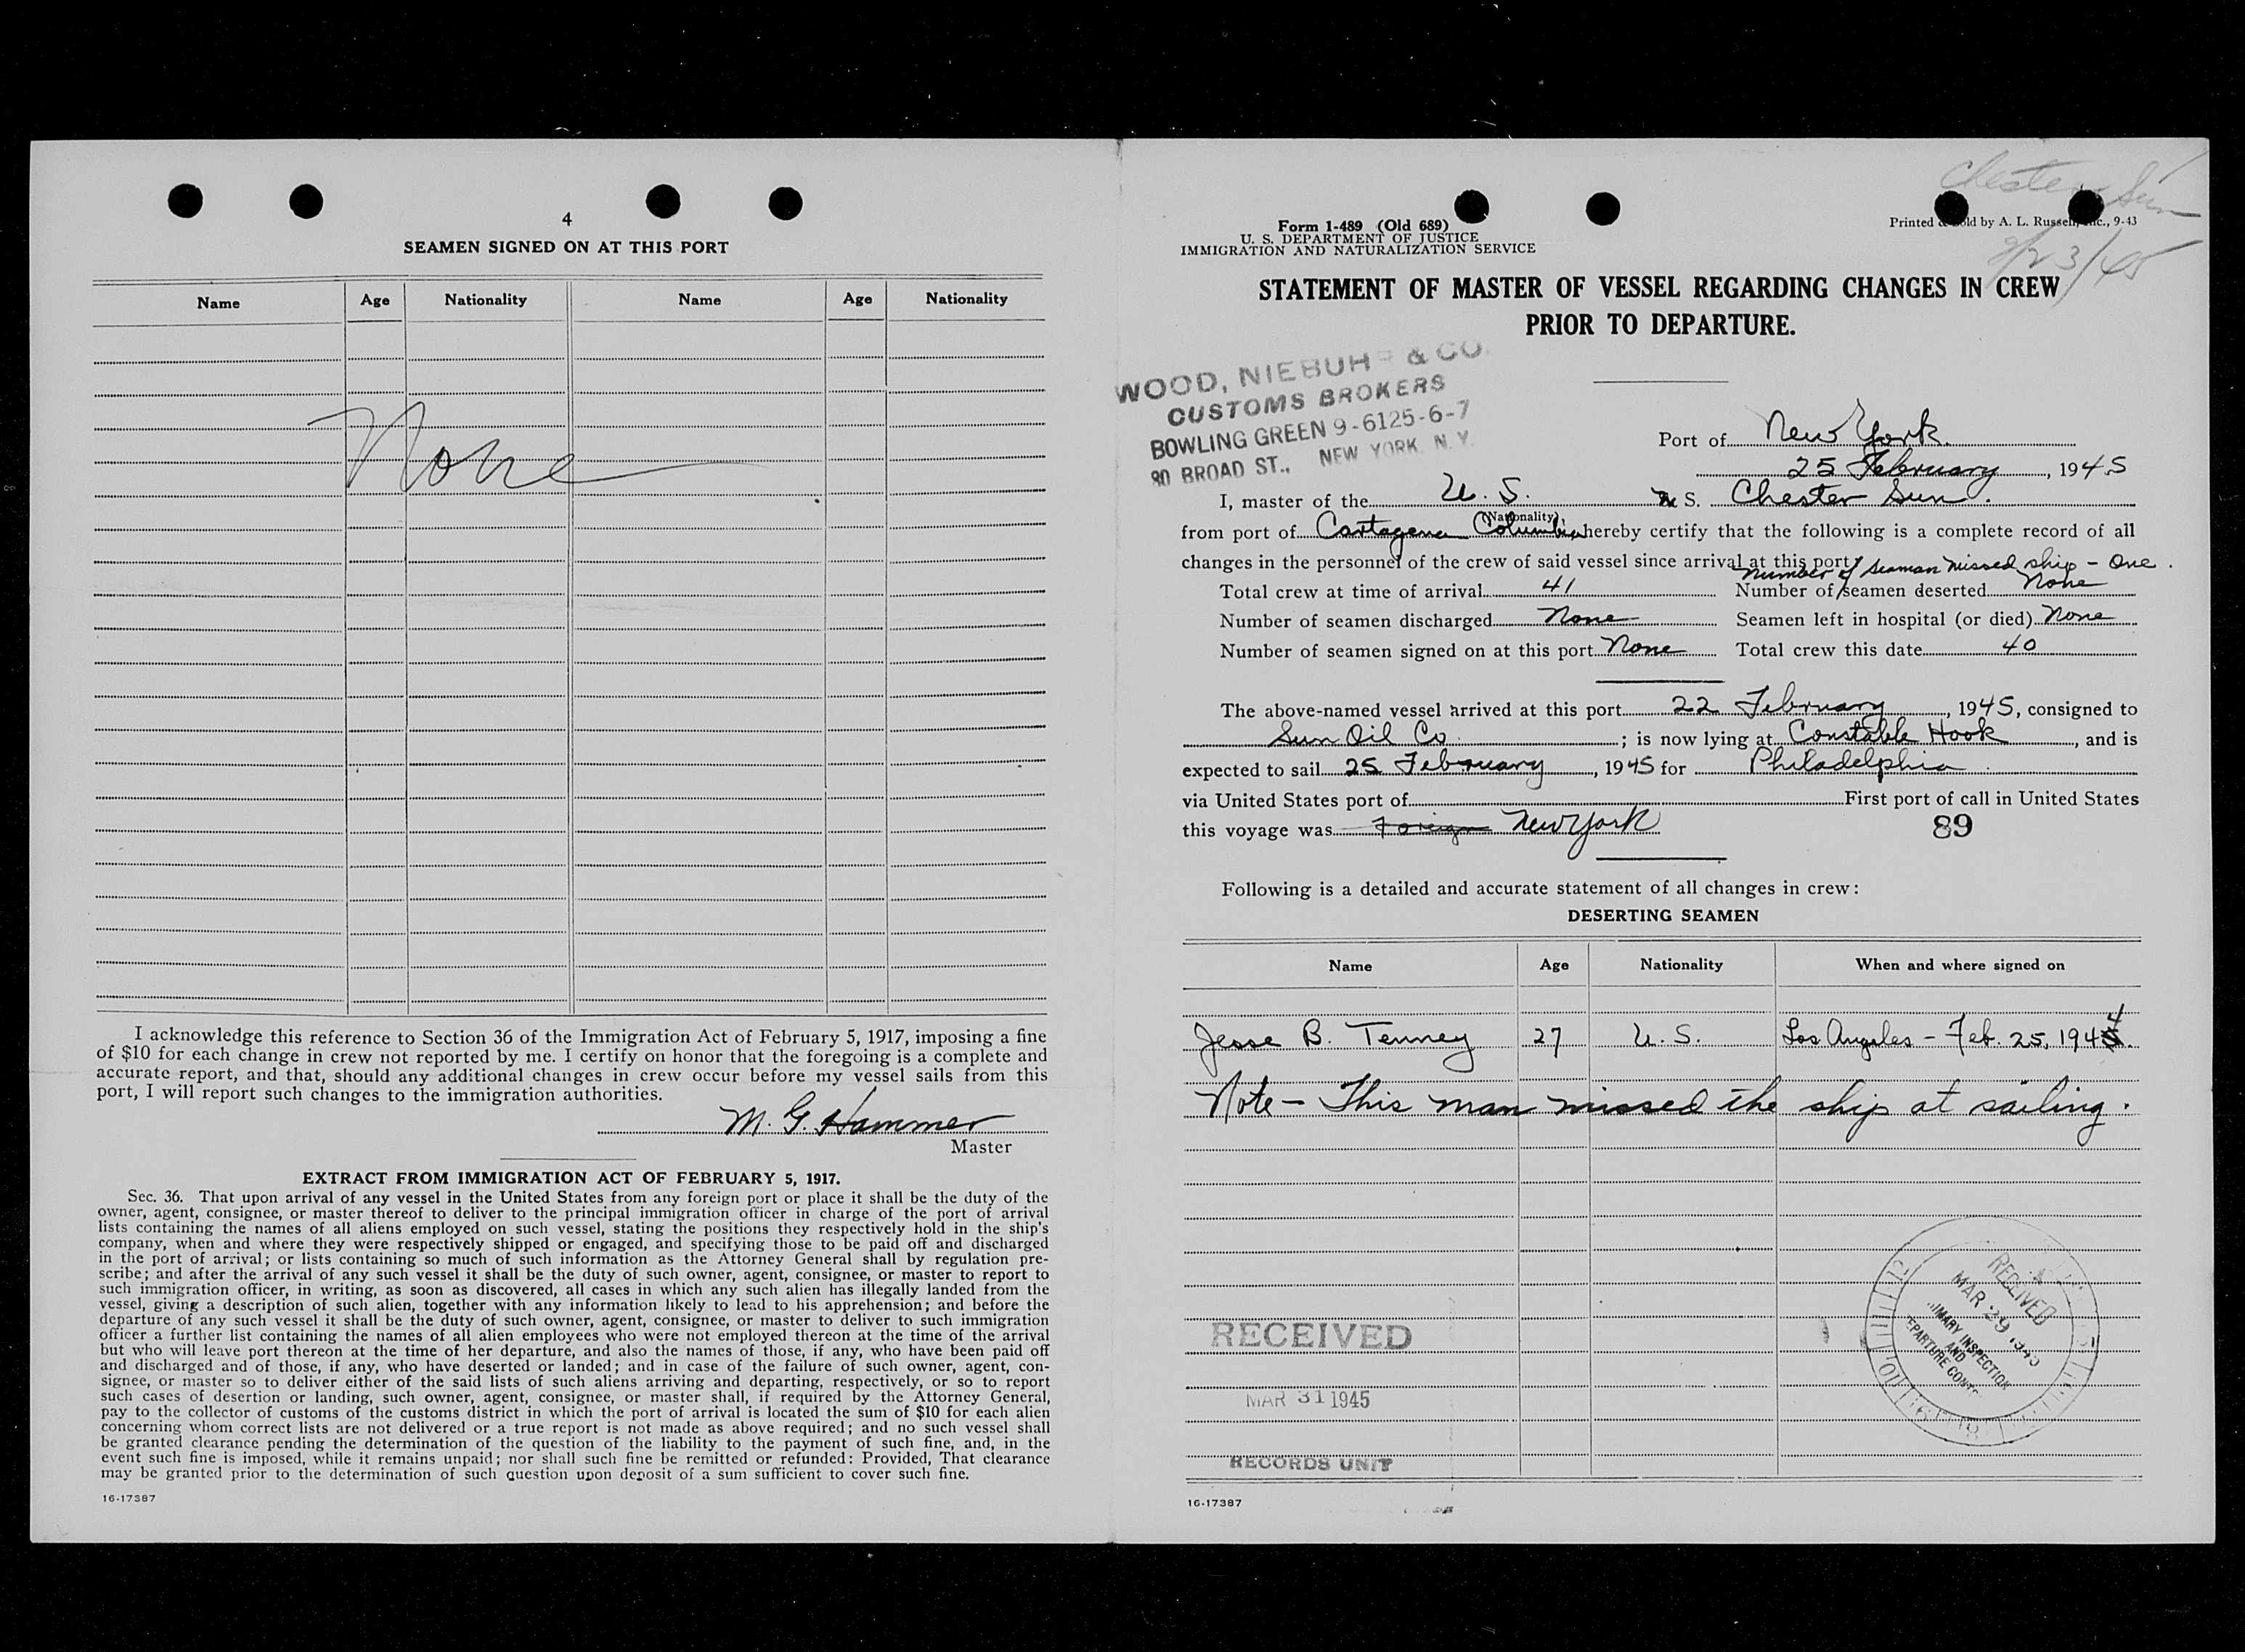 4
SEAMEN SIGNED ON AT THIS PORT
Name Age Nationality Name Age Nationality
None
I acknowledge this reference to Section 36 of the Immigration Act of February 5, 1917, imposing a fine
of $10 for each change in crew not reported by me. I certify on honor that the foregoing is a complete and
accurate report, and that, should any additional changes in crew occur before my vessel sails from this
port, I will report such changes to the immigration authorities.
M. G. Hammer
Master
EXTRACT FROM IMMIGRATION ACT OF FEBRUARY 5, 1917.
Sec. 36. That upon arrival of any vessel in the United States from any foreign port or place it shall be the duty of the
owner, agent, consignee, or master thereof to deliver to the principal immigration officer in charge of the port of arrival
lists containing the names of all aliens employed on such vessel, stating the positions they respectively hold in the ship's
company, when and where they were respectively shipped or engaged, and specifying those to be paid off and discharged
in the port of arrival; or lists containing so much of such information as the Attorney General shall by regulation pre-
scribe; and after the arrival of any such vessel it shall be the duty of such owner, agent, consignee, or master to report to
such immigration officer, in writing, as soon as discovered, all cases in which any such alien has illegally landed from the
vessel, giving a description of such alien, together with any information likely to lead to his apprehension; and before the
departure of any such vessel it shall be the duty of such owner, agent, consignee, or master to deliver to such immigration
officer a further list containing the names of all alien employees who were not employed thereon at the time of the arrival
but who will leave port thereon at the time of her departure, and also the names of those, if any, who have been paid off
and discharged and of those, if any, who have deserted or landed; and in case of the failure of such owner, agent, con-
signee, or master so to deliver either of the said lists of such aliens arriving and departing, respectively, or so to report
such cases of desertion or landing, such owner, agent, consignee, or master shall, if required by the Attorney General,
pay to the collector of customs of the customs district in which the port of arrival is located the sum of $10 for each alien
concerning whom correct lists are not delivered or a true report is not made as above required; and no such vessel shall
be granted clearance pending the determination of the question of the liability to the payment of such fine, and, in the
event such fine is imposed, while it remains unpaid; nor shall such fine be remitted or refunded: Provided, That clearance
may be granted prior to the determination of such question upon deposit of a sum sufficient to cover such fine.
16-17387
Chester Sun
Form 1-489 (Old 689)
U. S. DEPARTMENT OF JUSTICE
IMMIGRATION AND NATURALIZATION SERVICE
Printed & Sold by A. L. Russell, Inc., 9-43
2/23/45
STATEMENT OF MASTER OF VESSEL REGARDING CHANGES IN CREW
PRIOR TO DEPARTURE.
WOOD, NIEBUHR & CO.
CUSTOMS BROKERS
BOWLING GREEN 9-6125-6-7
80 BROAD ST., NEW YORK N. Y.
Port of New York.
25 February, 1945
I, master of the U. S. S. Chester Sun.
(Nationality)
from port of Cartagena Columbia hereby certify that the following is a complete record of all
changes in the personnel of the crew of said vessel since arrival at this port:
Number of seaman missed ship - One.
Total crew at time of arrival 41 Number of seamen deserted None
Number of seamen discharged None Seamen left in hospital (or died) None
Number of seamen signed on at this port None Total crew this date 40
The above-named vessel arrived at this port 22 February, 1945, consigned to
Sun Oil Co.; is now lying at Constable Hook, and is
expected to sail 25 February, 1945 for Philadelphia.
via United States port of First port of call in United States
this voyage was Foreign New York 89
Following is a detailed and accurate statement of all changes in crew:
DESERTING SEAMEN
Name Age Nationality When and where signed on
Jesse B. Tenney 27 U. S. Los Angeles - Feb. 25, 1944.
Note - This man missed the ship at sailing.
RECEIVED
MAR 29 1945
PRIMARY INSPECTION
AND
DEPARTURE CONTR
RECEIVED
MAR 31 1945
RECORDS UNIT
16-17387